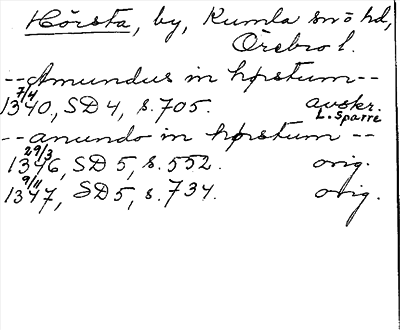 Hörsta, by, Kumla snö hd,
Örebro l.
-- Amundus in hørstum --
7/4
1340, SD 4, s. 705. avskr.
L. Sparre
-- anundo in hørstum --
29/3
1346, SD 5, s. 552. orig.
9/11
1347, SD 5, s. 734. orig.